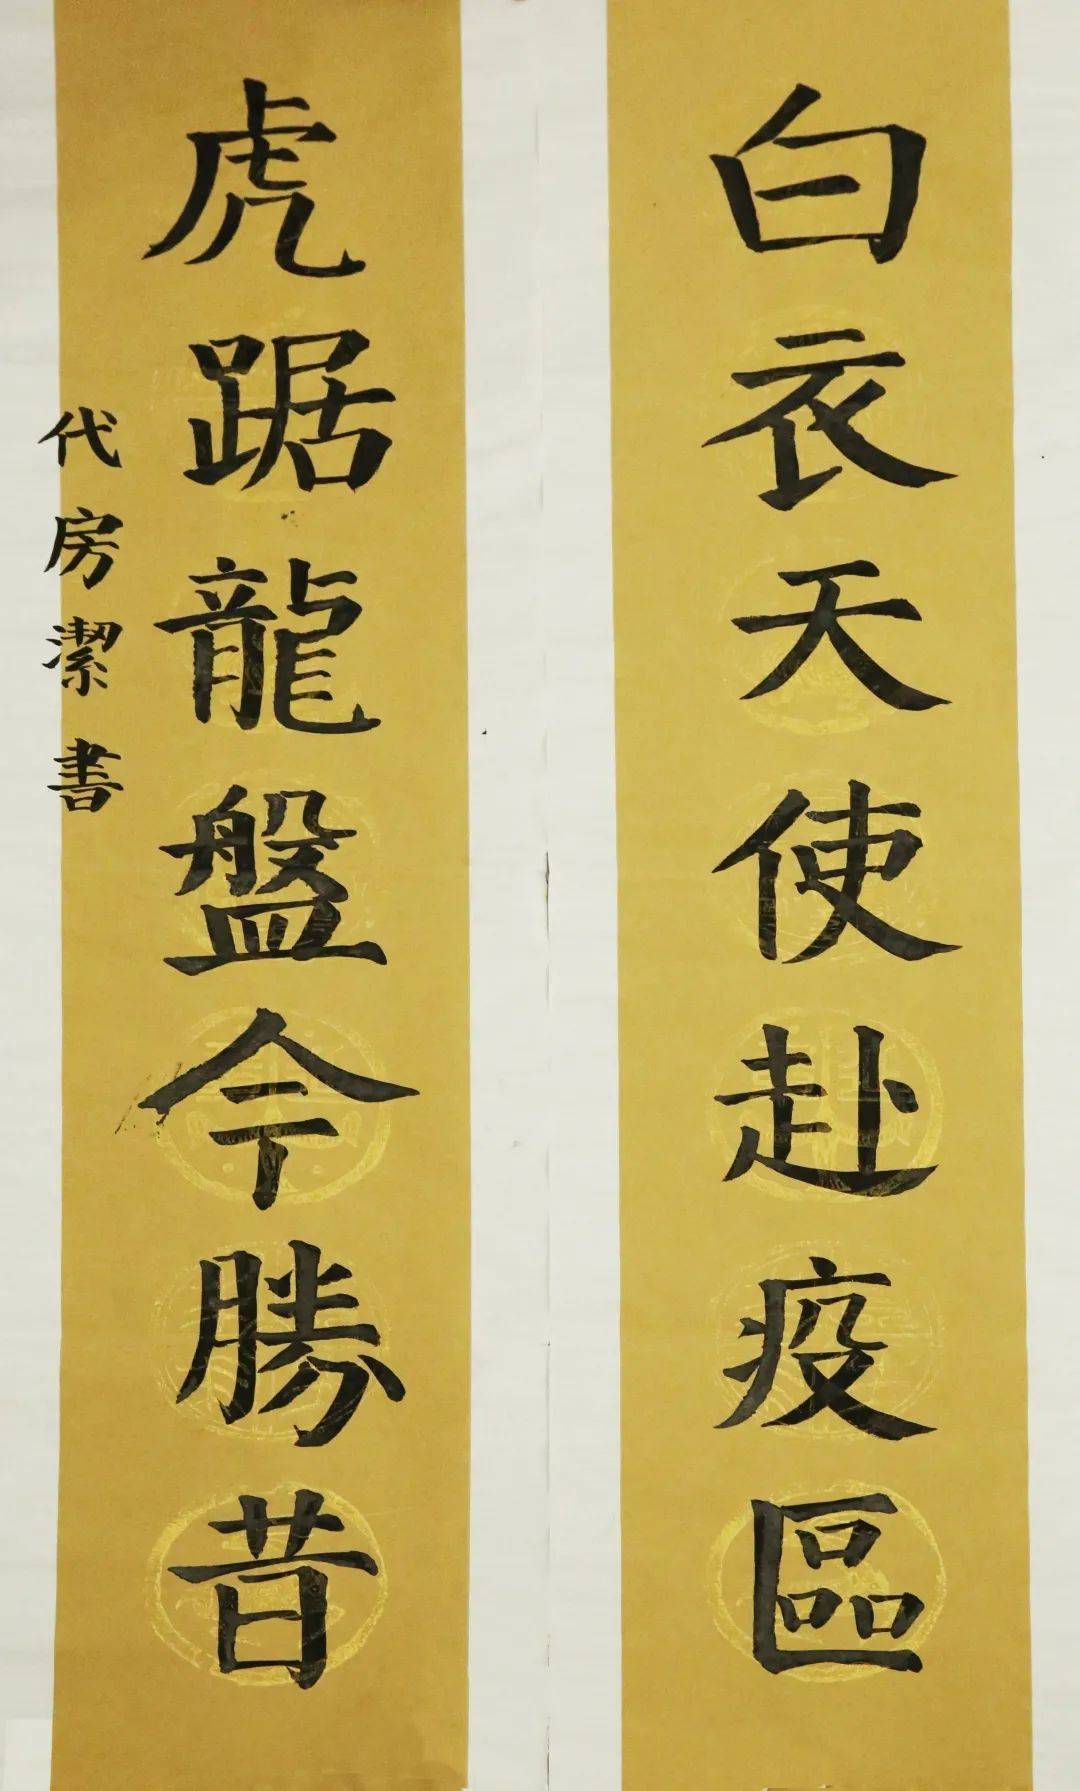 白衣天使赴疫區
虎踞龍盤今勝昔
代房潔書